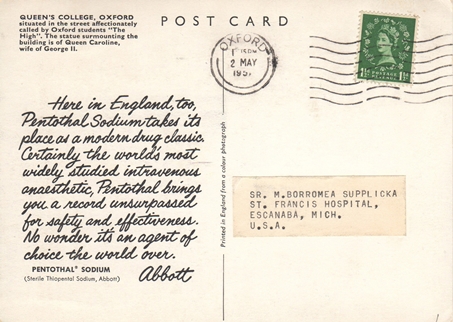 QUEEN'S COLLEGE, OXFORD
situated in the street affectionately
called by Oxford students "The
High". The statue surmounting the
building is of Queen Caroline,
wife of George II.
POST CARD
OXFORD
2 MAY
POSTAGE
1½D
Here in England, too,
Pentothal Sodium takes its
place as a modern drug classic.
Certainly the world's most
widely studied intravenous
anaesthetic, Pentothal brings
you a record unsurpassed
for safety and effectiveness.
No wonder it's an agent of
choice the world over.
PENTOTHAL® SODIUM
(Sterile Thiopental Sodium, Abbott)
Abbott
Printed in England from a colour photograph
SR. M.BORROMEA SUPPLICKA
ST. FRANCIS HOSPITAL,
ESCANABA, MICH.
U.S.A.